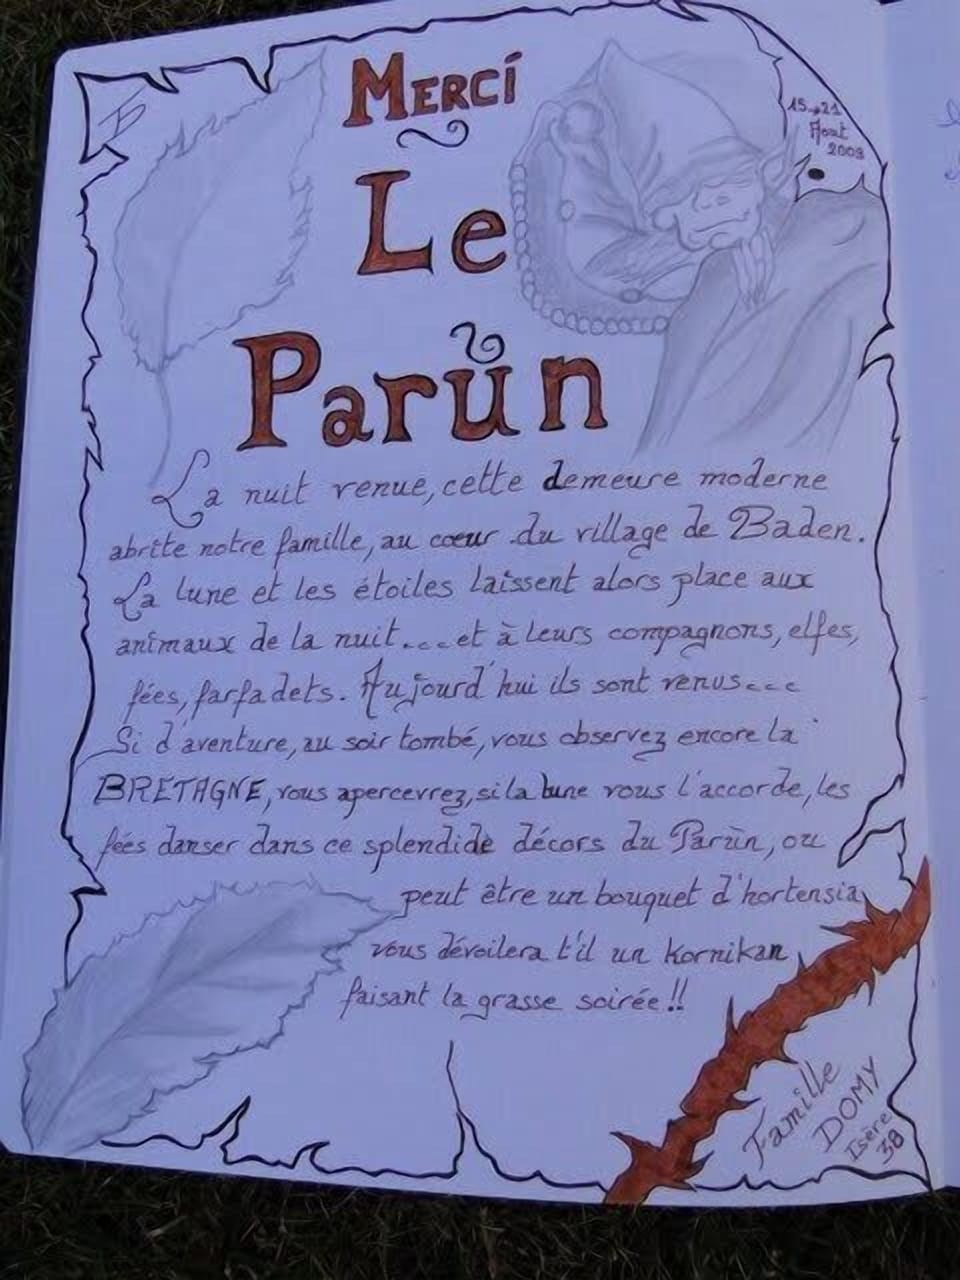 MERCI
15→21
Août
2009
Le
Parùn
La nuit venue, cette demeure moderne
abrite notre famille, au coeur du village de Baden.
La lune et les étoiles laissent alors place aux
animaux de la nuit... et à leurs compagnons, elfes,
fées, farfadets. Aujourd'hui ils sont venus...
Si d'aventure, au soir tombé, vous observez encore la
BRETAGNE, vous apercevrez, si la lune vous l'accorde, les
fées danser dans ce splendide décors du Parùn, ou
peut être un bouquet d'hortensia
vous dévoilera t'il un Kornikan
faisant la grasse soirée!!
Famille
DOMY
Isère
38